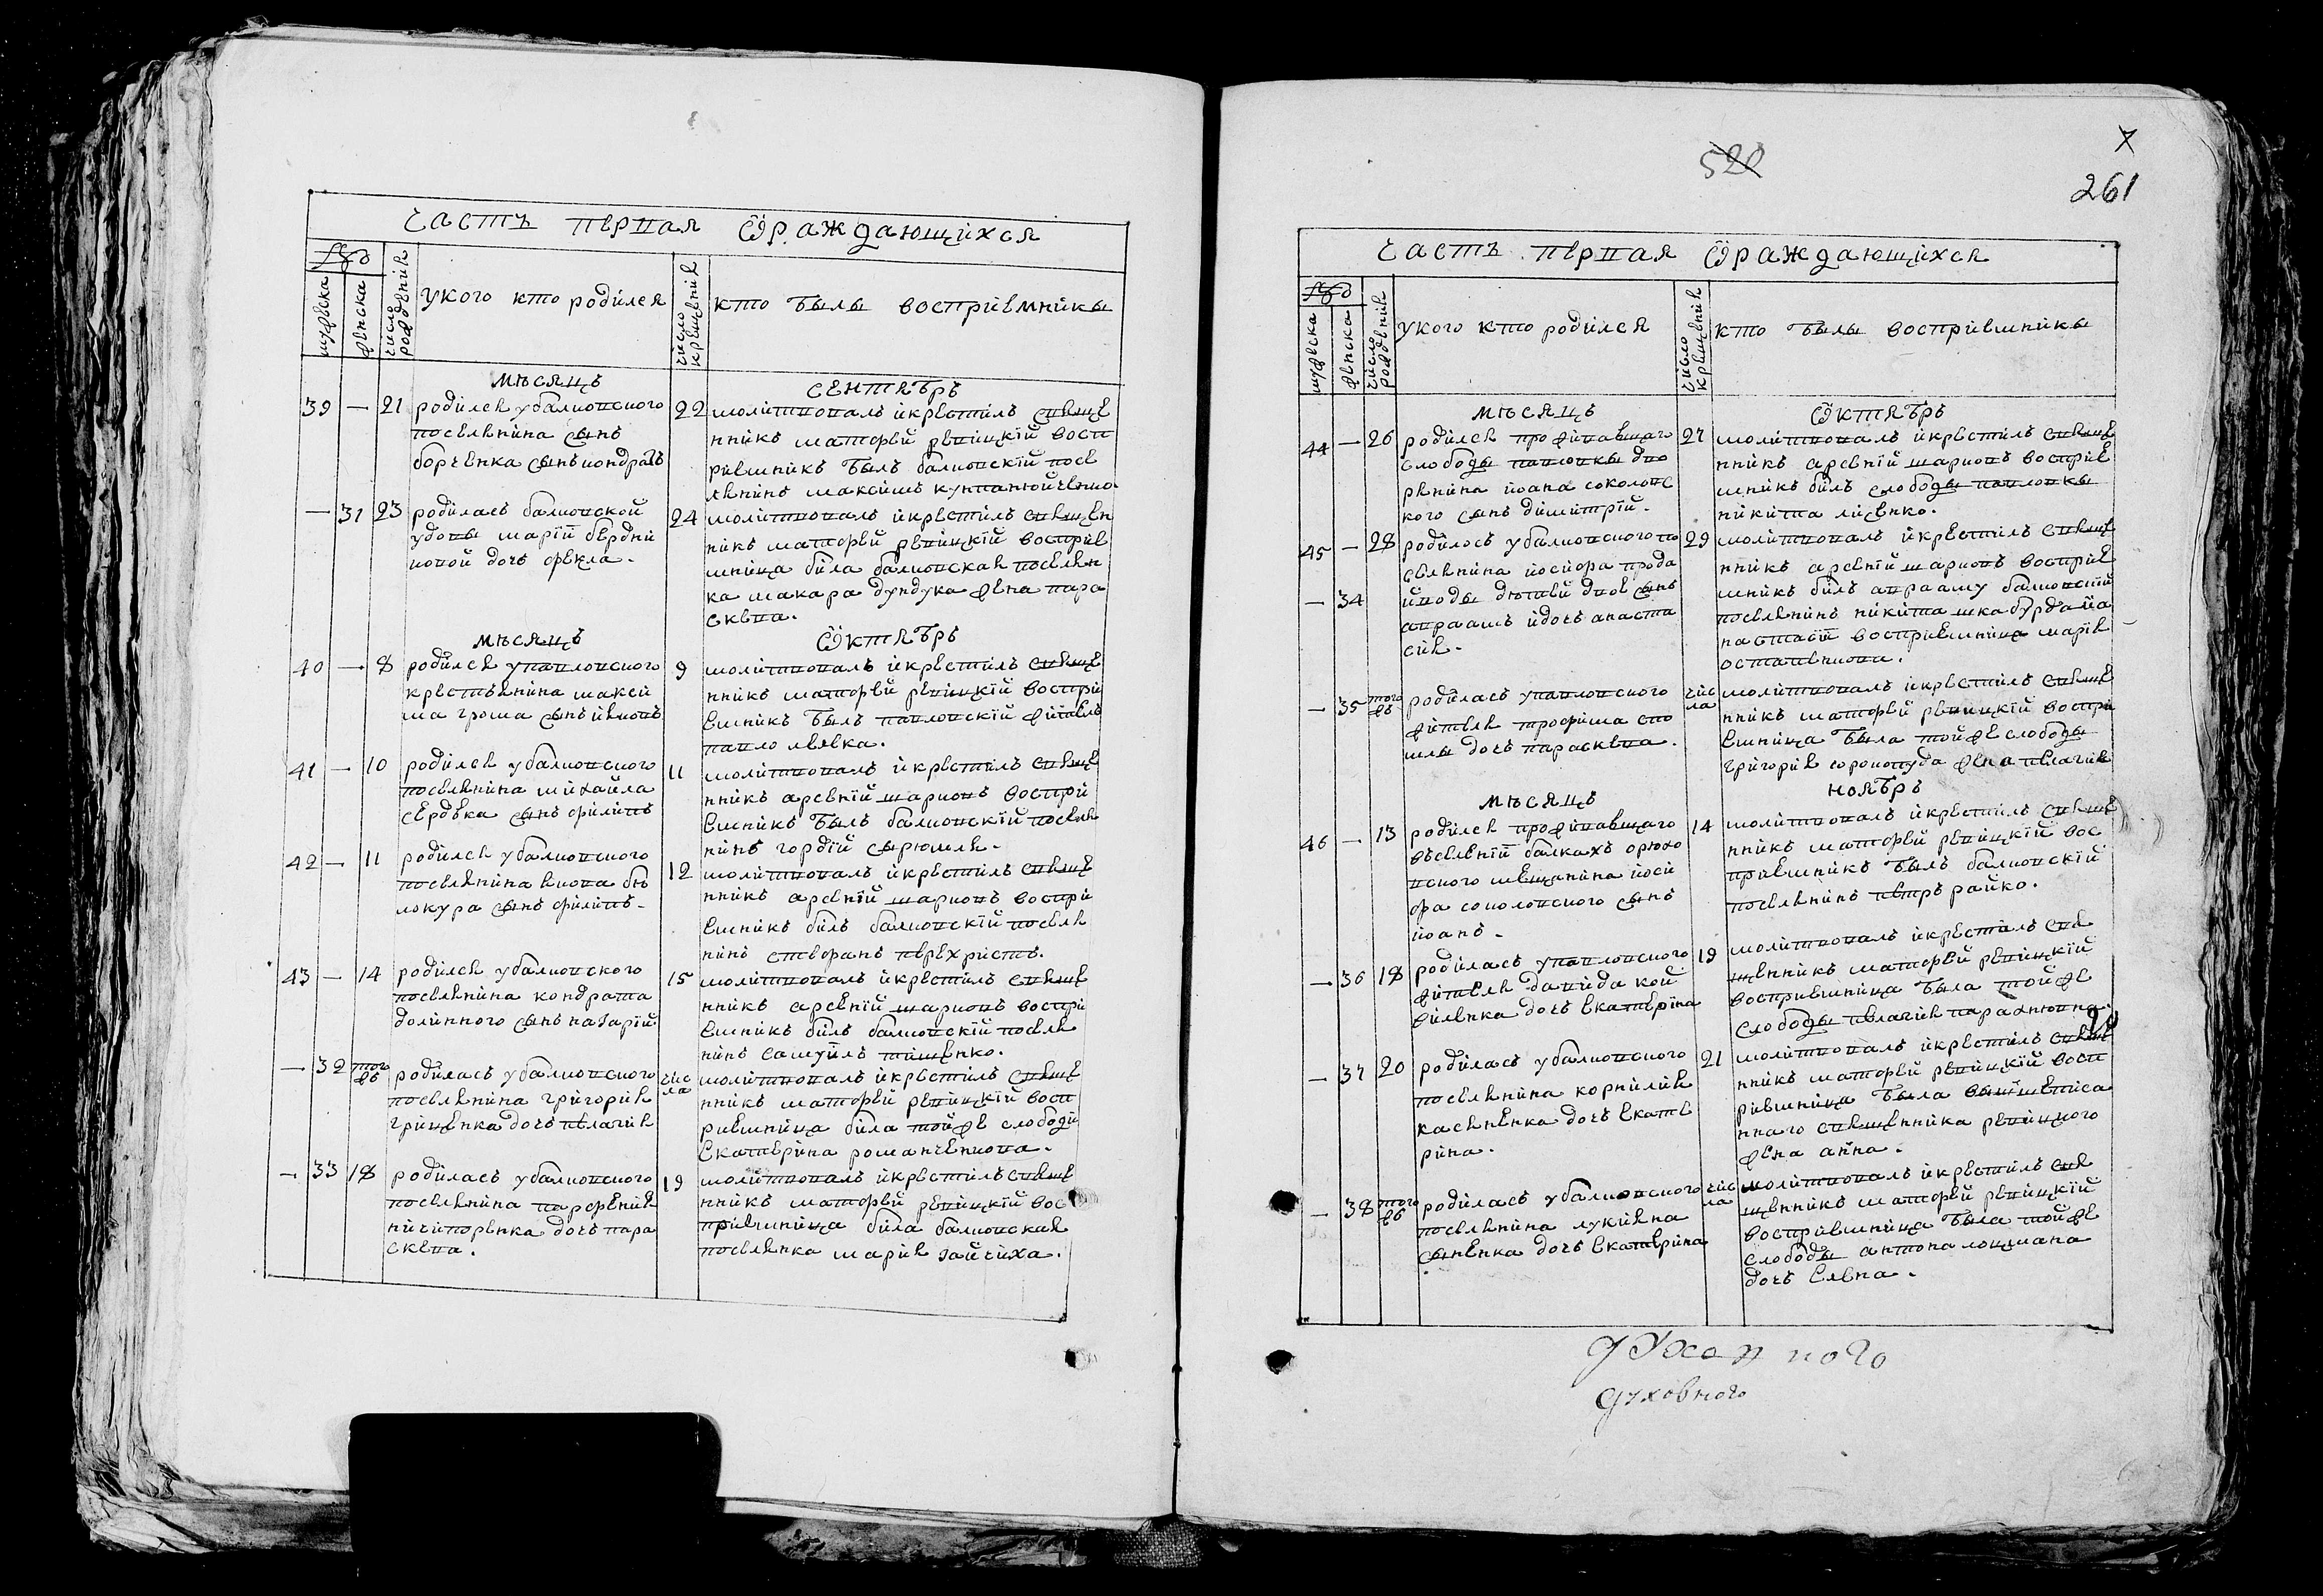 часть первая Ѿраждающихся
мужеска
женска
число рожденія
у кого кто родился
число крещенія
кто были воспріемники
мѣсяцъ
сентябрь
39 — 21 родился убалковского
поселянина сынъ
22 молитвовалъ икрестилъ свяще
нникъ матфей рѣвицкій восп
ріемникъ былъ балковскій посе
лянинъ максимъ
— 31 23 родилась балковской
удовы маріи бѣрдни
ковой дочь фекла.
24 молитвовалъ икрестилъ священ
никъ матфей рѣвицкій воспріе
мница била балковская поселян
ка макара дундука жена пара
скева.
мѣсяцъ
Ѿктябрь
40 — 8 родился упавловского
крестьянина макси
ма грома сынъ іяковъ
9 молитвовалъ икрестилъ свяще
нникъ матфей рѣвицкій воспрі
емникъ былъ павловскій житель
павло лѣвка.
41 — 10 родился убалковского
поселянина михайла
сердѣка сынъ филипъ
11 молитвовалъ икрестилъ свяще
нникъ арсеній марковъ воспрі
емникъ былъ балковскій поселя
нинъ гордій
42 — 11 родился убалковского
поселянина якова бѣ
локура сынъ филипъ.
12 молитвовалъ икрестилъ свяще
нникъ арсеній марковъ воспрі
емникъ билъ балковскій поселя
нинъ стефанъ перехристъ.
43 — 14 родился убалковского
поселянина кондрата
долинного сынъ назарій
15 молитвовалъ икрестилъ свяще
нникъ арсеній марковъ воспрі
емникъ билъ балковскій поселя
нинъ самуилъ тищенко.
— 32 тогожъ родилась убалковского
поселянина григорія
грищенка дочь пелагія
числа молитвовалъ икрестилъ свяще
нникъ матфей рѣвицкій восп
ріемница била тойже слободи
екатерина романченкова.
— 33 18 родилась убалковского
поселянина парфенія
ничипоренка дочь пара
скева.
19 молитвовалъ икрестилъ свяще
нникъ матфей рѣвицкій вос
пріемница била балковская
поселянка марія зайчиха.
520
7
261
часть первая Ѿраждающихся
мужеска
женска
число рожденія
у кого кто родился
число крещенія
кто были воспріемники
мѣсяцъ
Ѿктябрь
44 — 26 родился проживавшаго
слободы павловкы дво
ренина іоана соколовс
кого сынъ димитрій.
27 молитвовалъ икрестилъ свяще
нникъ арсеній марковъ воспріе
мникъ билъ слободы павловкы
никита лисенко.
45 — 28 родилось убалковского по
— 34
селянина іосифа прода
йводы дютей двое сынъ
авраамъ идочь анаста
сія.
29 молитвовалъ икрестилъ свяще
нникъ арсеній марковъ воспріе
мникъ билъ аврааму балковскій
поселянинъ никита шкабурда йа
настасіи воспріемница марія
остапенкова.
— 35 тогожъ родилась упавловского
жителя трофима сво
мы дочь параскева.
числа молитвовалъ икрестилъ свяще
нникъ матфей рѣвицкій воспрі
емница была тойже слободы
григорія сороко­пуда жена пелагія
мѣсяцъ
ноябрь
46 — 13 родился проживавшаго
въселеніи балкахъ орюхо
вского мещанина іоси
фа соколовского сынъ
іоанъ.
14 молитвовалъ икрестилъ свяще
нникъ матфей рѣвицкій вос
пріемникъ былъ балковскій
поселянинъ петръ райко.
— 36 18 родилась упавловского
жителя давида кой
биленка дочь екатерина
19 молитвовалъ икрестилъ свя
щенникъ матфей рѣвицкій
воспріемница была тойже
слободы пелагія
— 37 20 родилась убалковского
поселянина корнилія
касяненка дочь екате
рина.
21 молитвовалъ икрестилъ свяще
нникъ матфей рѣвицкій восп
ріемница была вышшеписа
нного священника рѣвицкого
жена анна.
— 38 тогожъ родилась убалковского
поселянина лукіяна
сыненка дочь екатерина
числа молитвовалъ икрестилъ свя
щенникъ матфей рѣвицкій
воспріемница была тойже
слободы антона лоцмана
дочь елена.
духовного
духовного